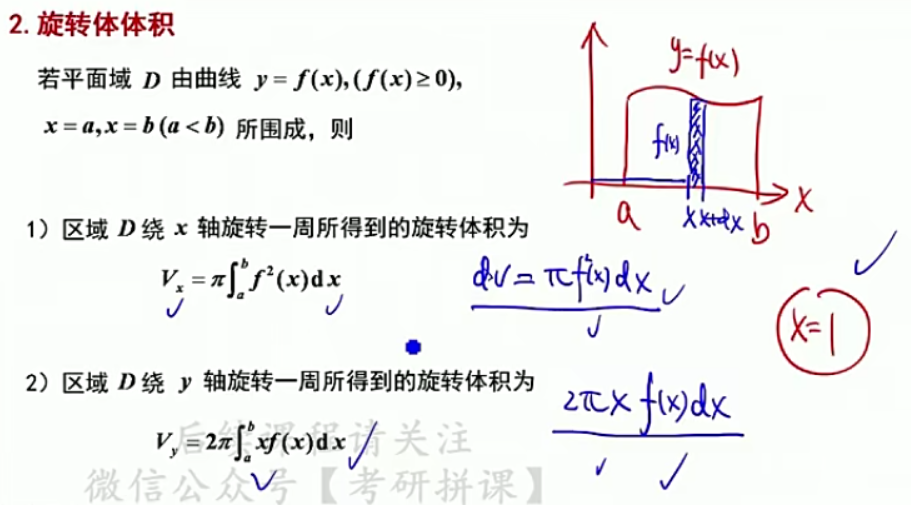 2. 旋转体体积
若平面域 D 由曲线 y = f(x), (f(x) ≥ 0),
x = a, x = b (a < b) 所围成，则
y=f(x)
f(x)
a x x+dx b x
1）区域 D 绕 x 轴旋转一周所得到的旋转体积为
V_x = π∫_a^b f²(x)dx
dv = πf²(x)dx
x=1
2）区域 D 绕 y 轴旋转一周所得到的旋转体积为
V_y = 2π∫_a^b xf(x)dx
2πx f(x)dx
后续课程请关注
微信公众号【考研拼课】